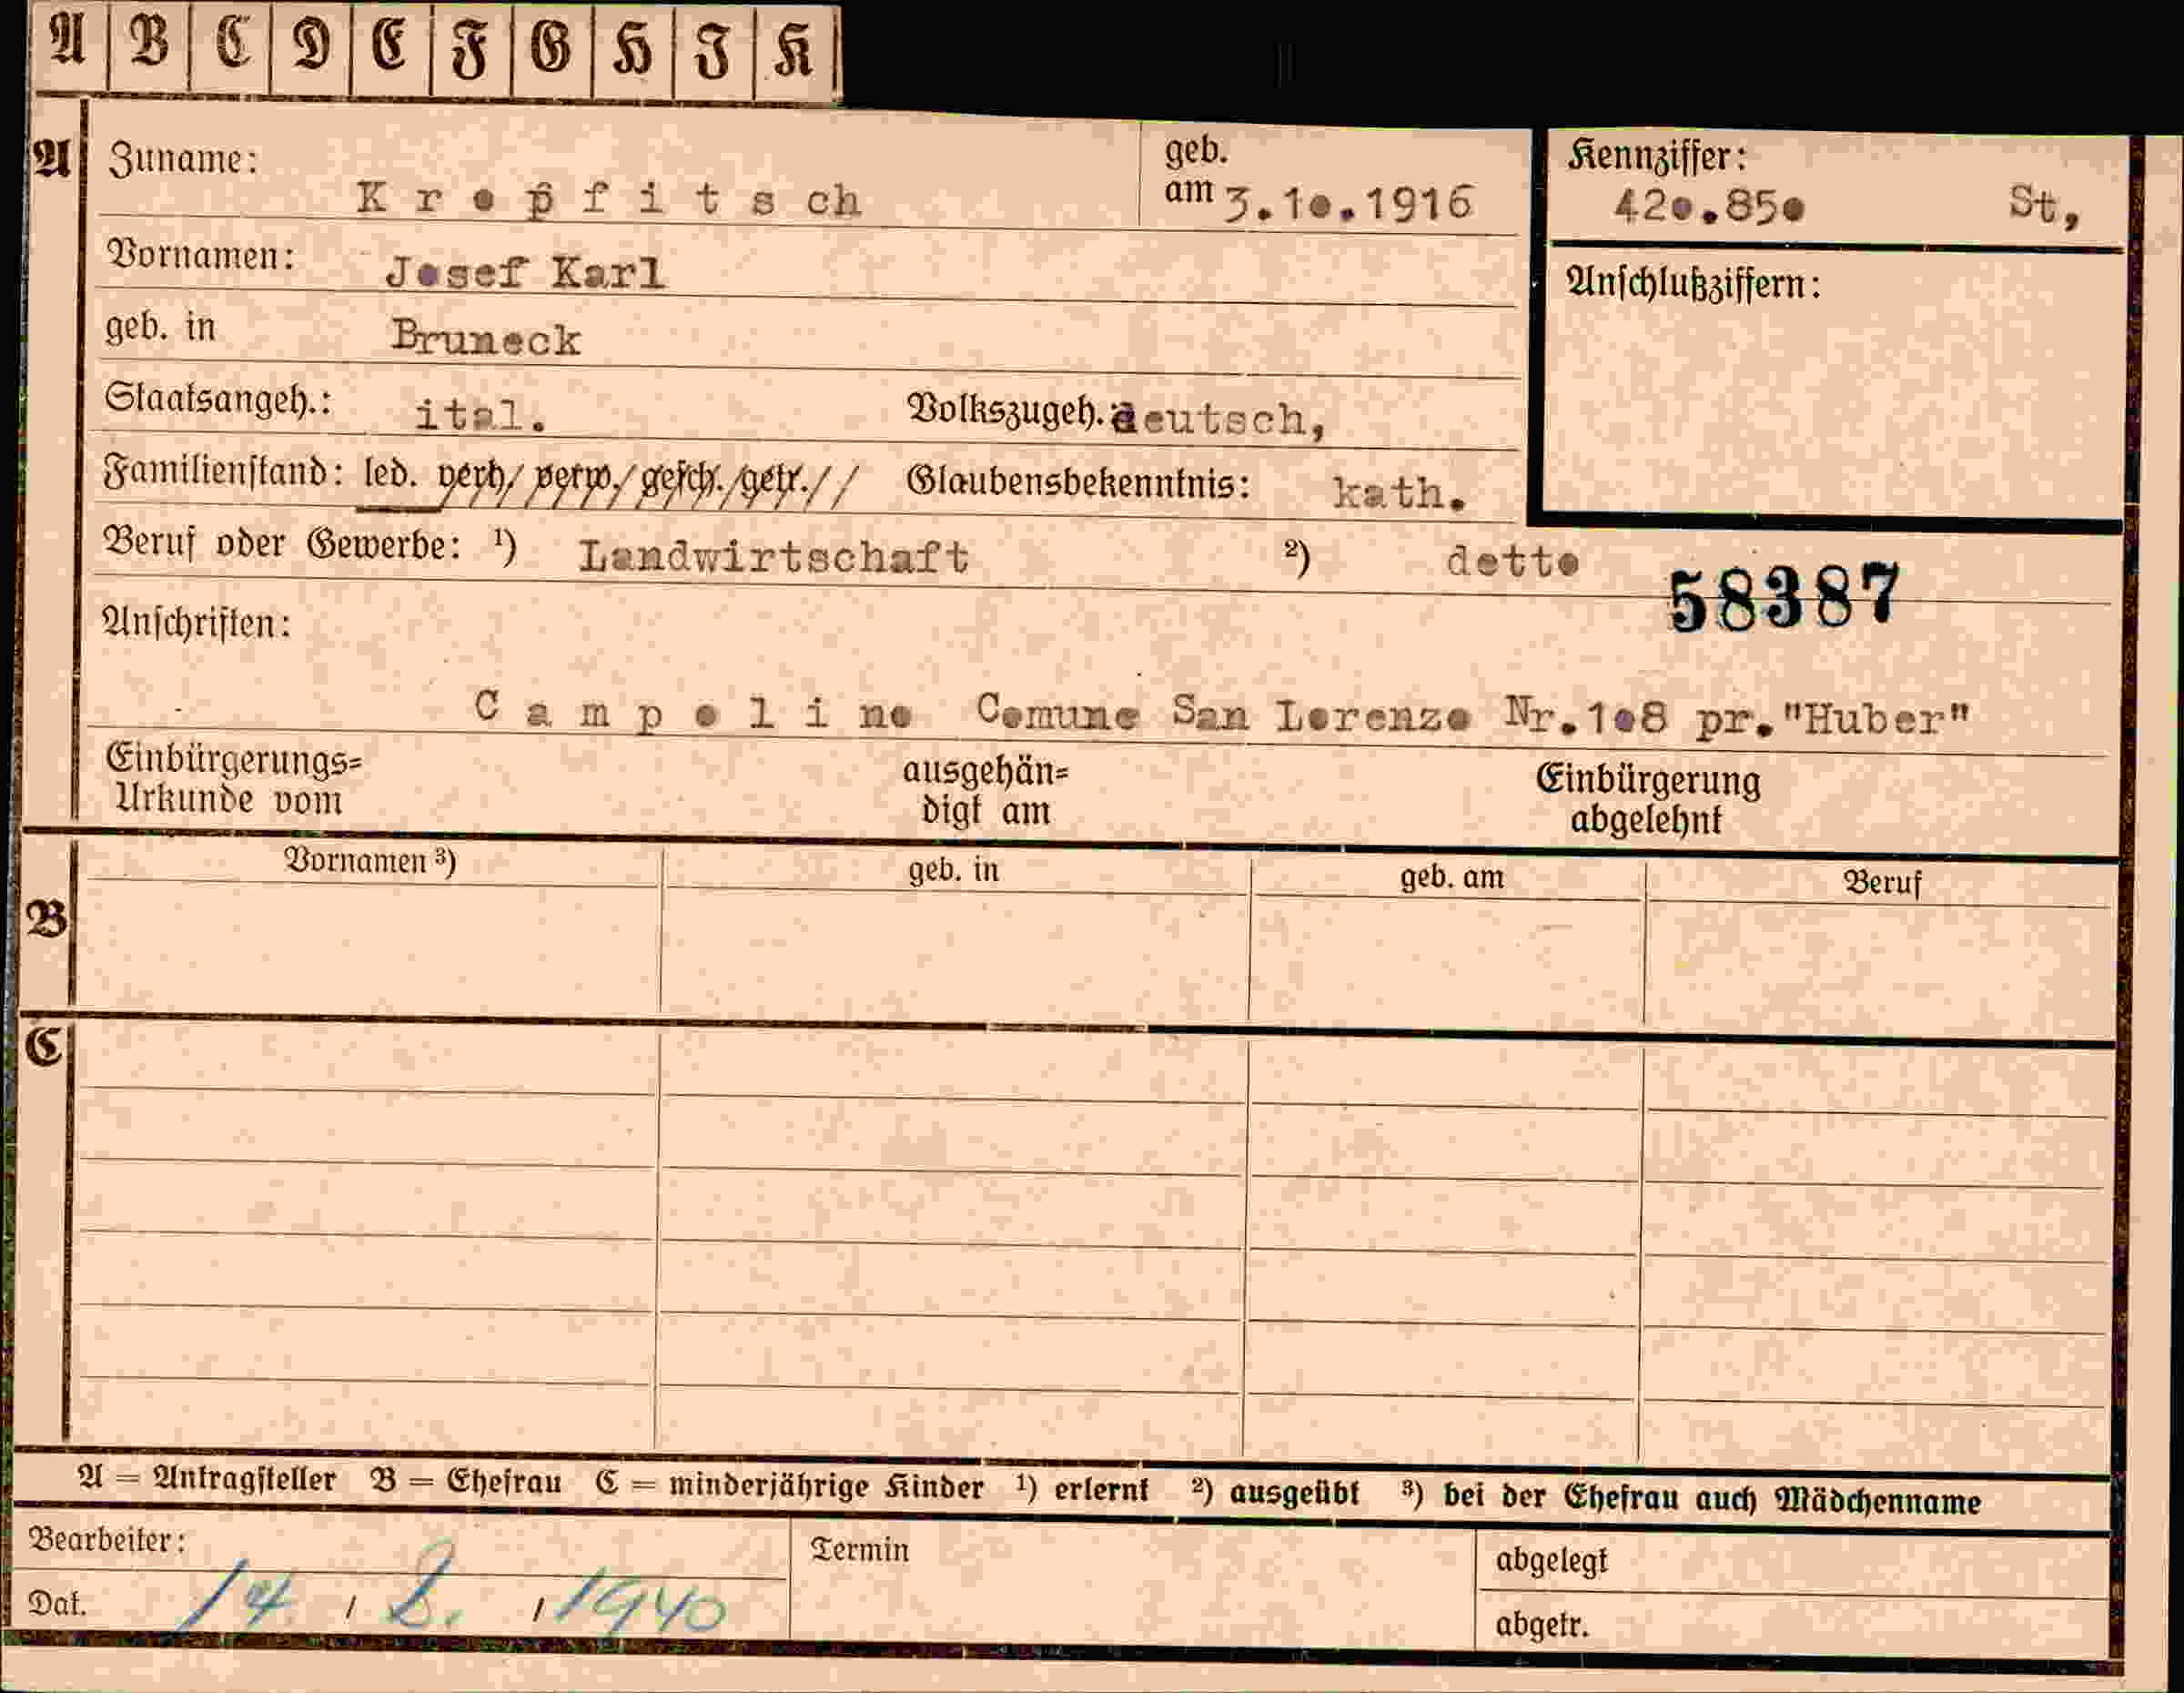 A B C D E F G H J K
A Zuname: Kropfitsch geb. am 3.10.1916 Kennziffer: 420.850 St,
Vornamen: Josef Karl Anschlußziffern:
geb. in Bruneck
Staatsangeh.: ital. Volkszugeh. deutsch,
Familienstand: led. verh./verw./gesch./getr.// Glaubensbekenntnis: kath.
Beruf oder Gewerbe: ¹) Landwirtschaft ²) detto
58387
Anschriften:
Campolino Comune San Lorenzo Nr.108 pr."Huber"
Einbürgerungs= ausgehän= Einbürgerung
Urkunde vom digt am abgelehnt
Vornamen ³) geb. in geb. am Beruf
B
C
A = Antragsteller B = Ehefrau C = minderjährige Kinder ¹) erlernt ²) ausgeübt ³) bei der Ehefrau auch Mädchenname
Bearbeiter: Termin abgelegt
Dat. 14. / 2. / 1940 abgetr.